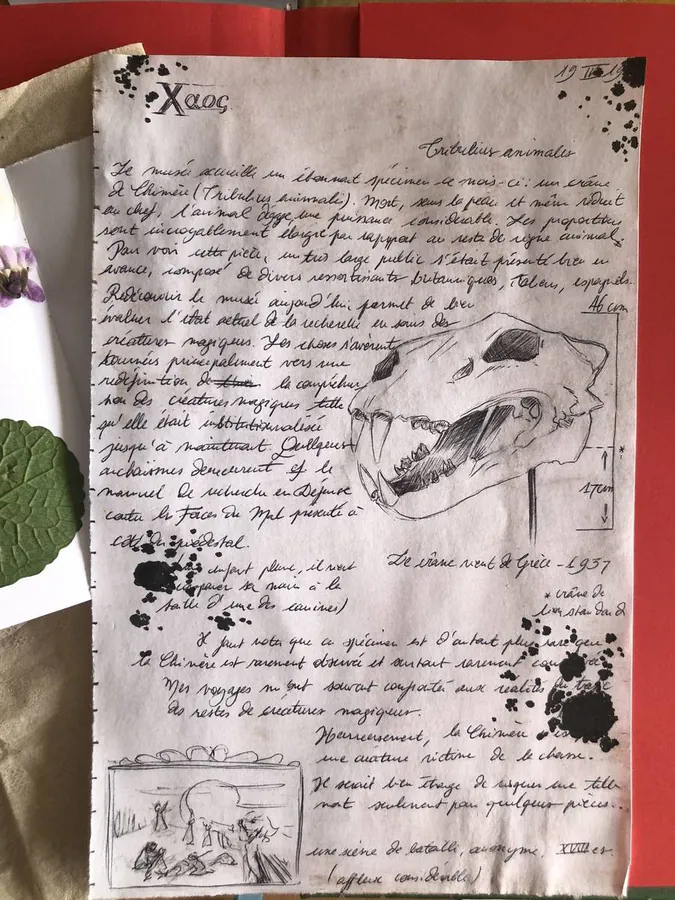 19 III 19
Χαος
Tribulius animales
Le musée accueille un étonnant spécimen ce mois-ci : un crâne
de Chimère (Tribulius animalis). Mort, sans la peau et même réduit
en chef, l'animal dégage une puissance considérable. Les proportions
sont incroyablement élargie par rapport au reste du règne animal.
Pour voir cette pièce, un très large public s'était présenté bien en
avance, composé de divers ressortissants britanniques, italiens, espagnols.
Redécouvrir le musé aujourd'hui permet de bien
évaluer l'état actuel de la recherche en soins des
créatures magiques. Les choses s'avèrent
tournées principalement vers une
redéfinition de la compréhen
sion des créatures magiques telle
qu'elle était institutionnalisée
jusqu'à maintenant. Quelques
archaïsmes demeurent et le
manuel de recherche en Défense
contre les Forces du Mal présenté à
côté du piédestal.
46 cm
17cm
*
un enfant pleure, il vient
comparer sa main à la
taille d'une des canines)
Le crâne vient de Grèce - 1937
* crâne de
lion standard
Il faut noter que ce spécimen est d'autant plus rare que
la Chimère est rarement observée et surtout rarement
Mes voyages m'ont souvent confrontée aux réalités du trafic
des restes de créatures magiques.
Heureusement, la Chimère
une créature victime de la chasse.
Il serait bien étrange de risquer une telle
mort seulement pour quelques pièces...
une scène de bataille, anonyme, XVIII es.
(affreux considérable)